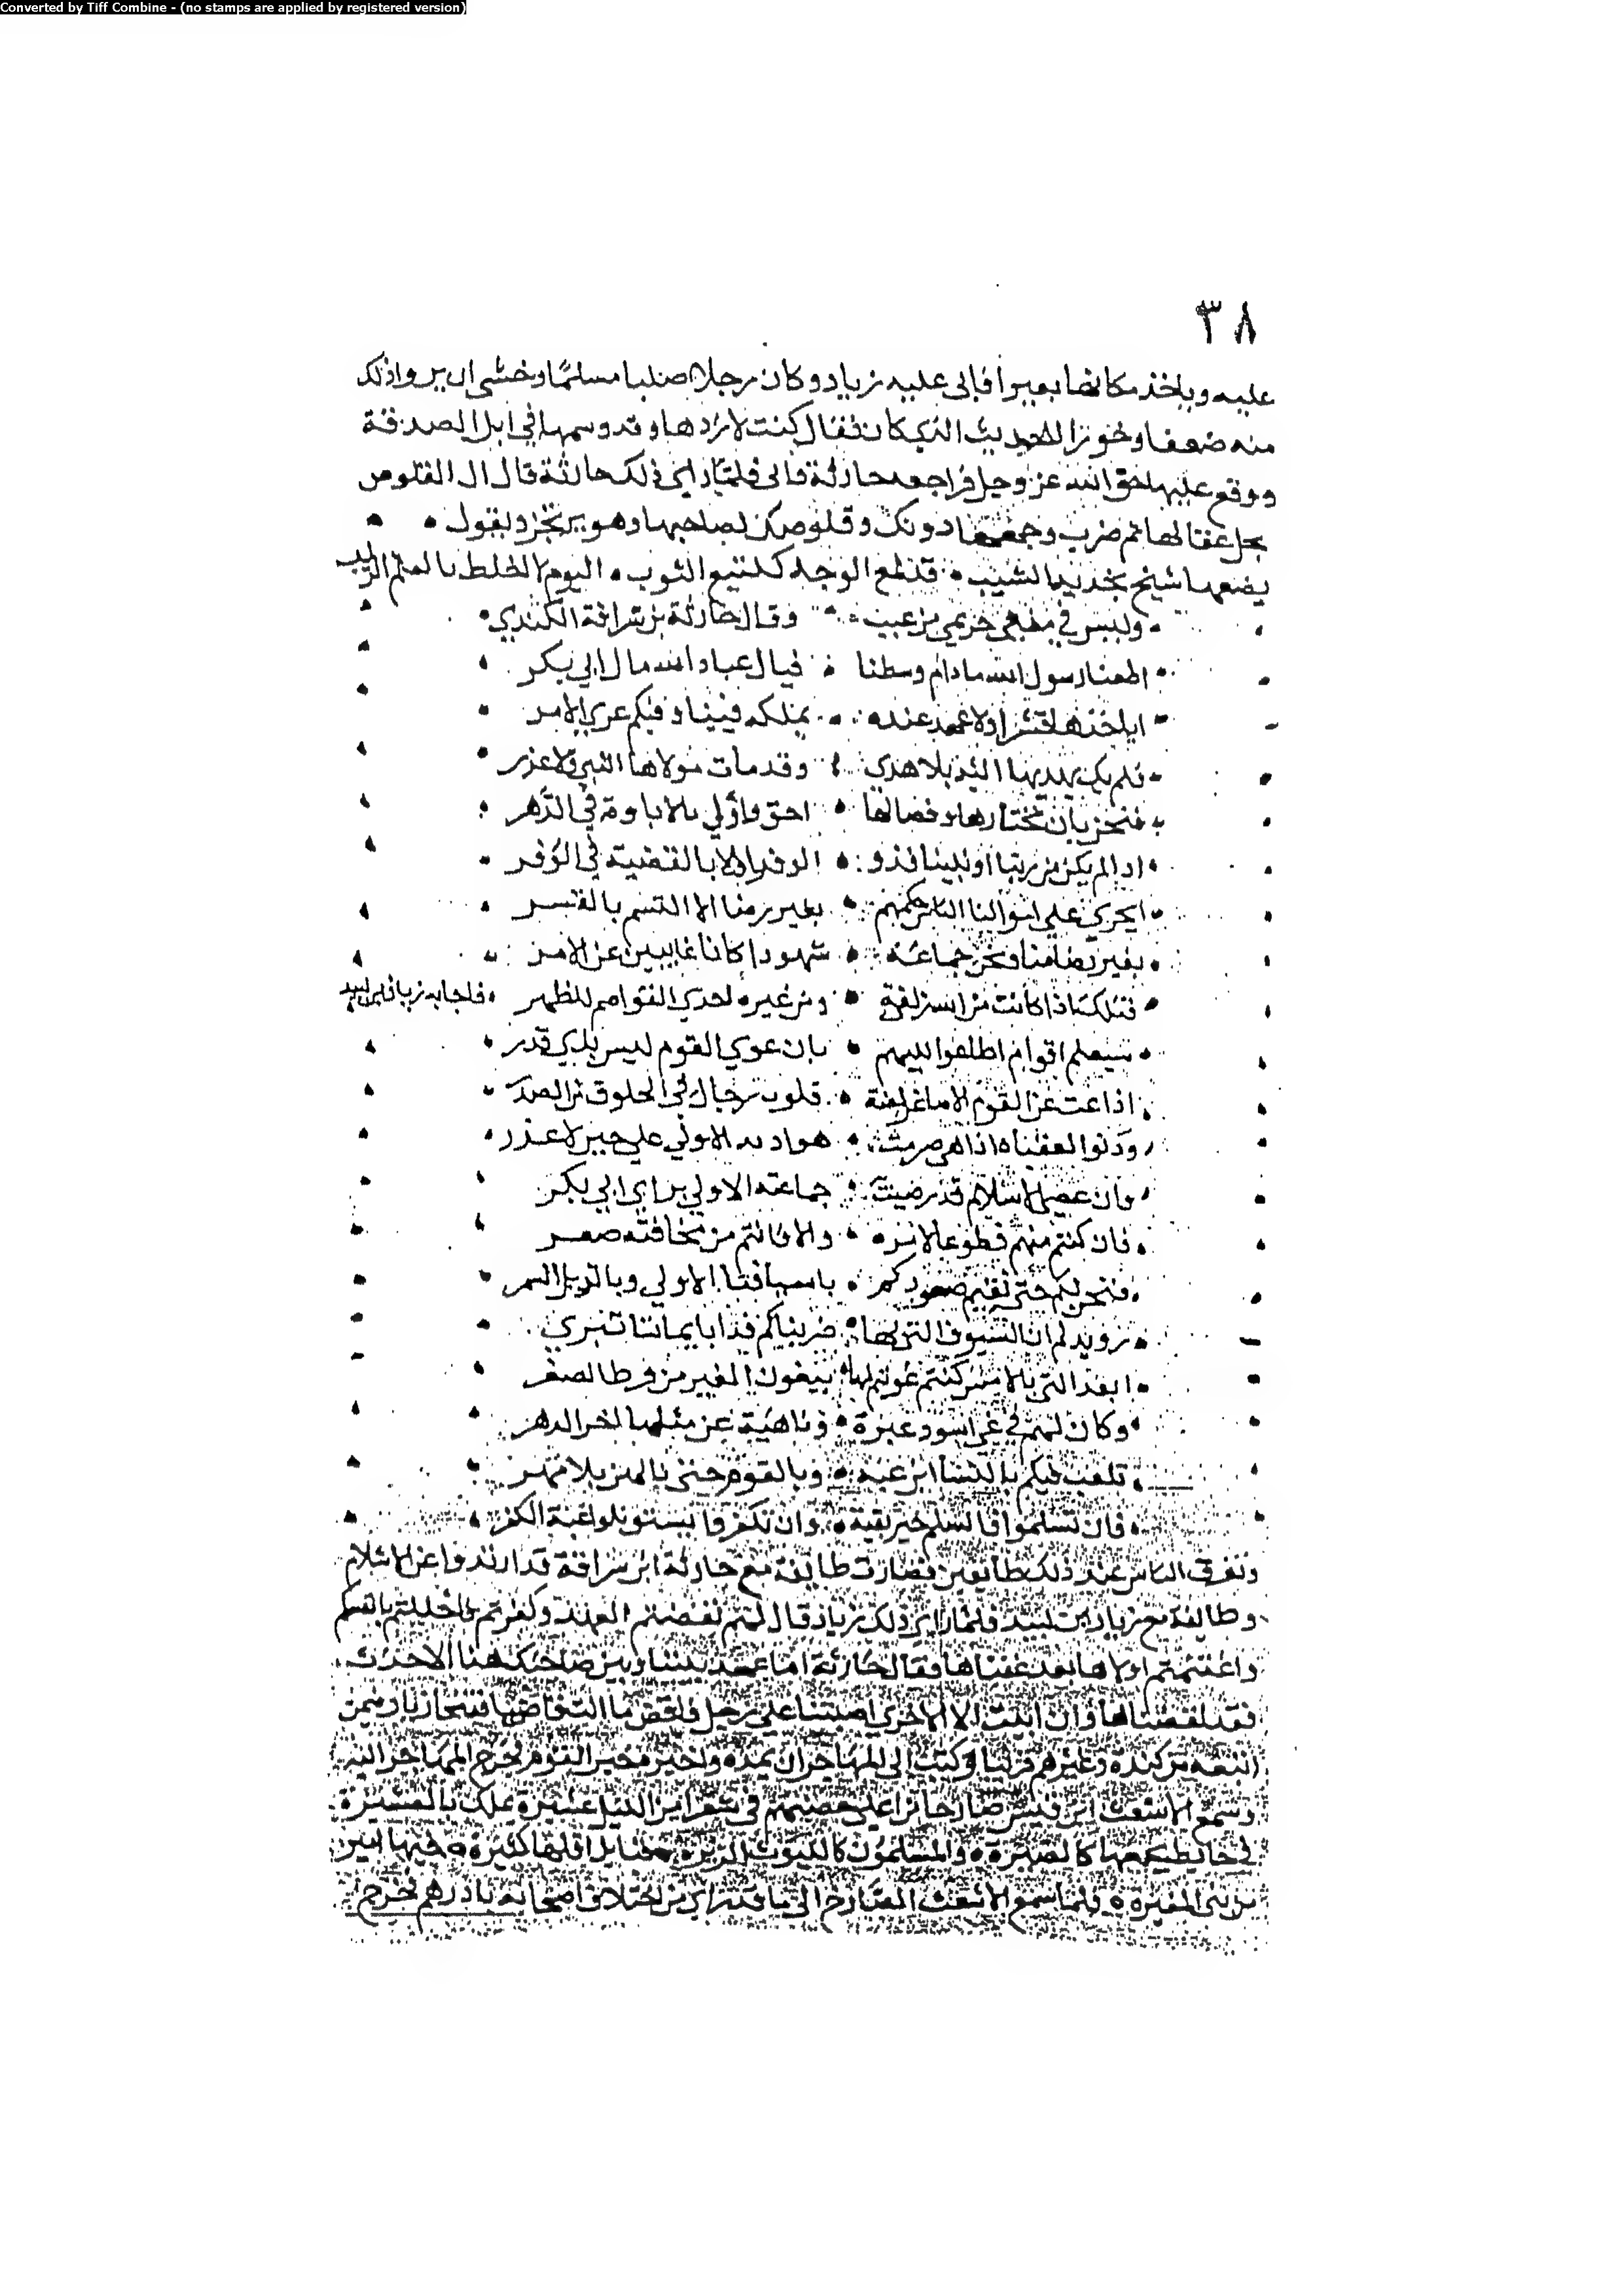 Converted by Tiff Combine - (no stamps are applied by registered version)
٣٨
عليه وياخذ مكانها بعيرا فابى عليه زياد وكان رجلا صلبا مسلما وخشى ان يروا ذلك
منه ضعفا وخورا للحديث الذي كان فقال كنت لاردها وقد وسمها في ابل الصدقة
ووقع عليها حق الله عز وجل فراجعه حارثة فابى فلما راى ذلك حارثة قال الى القلوص
بحل عقالها ثم ضرب وجهها دونك وقلوصك لصاحبها وهو يرتجز ويقول
يمنعها شيخ بخديه الشيب قد لمع الوجه كلتميع الثوب اليوم
وليس في منعي حريمي من عيب وقال حارثة بن سراقة الكندي
اطعنا رسول الله مادام وسطنا فيال عباد الله مال ابي بكر
ايلخذها ولا عهد عنده يملكه فينا وفيكم عرى الامر
فلم يك يهديها اليه بلا هدى وقد مات مولاها النبي ولا عذر
فنحن بان نختارها وفصالها احق واولى بالاباوة في الدهر
اذا لم يكن من ربنا او نبينا فذو الوفر اولى بالقضية في الوفر
ايجري على اموالنا الناس حكمهم بغير رضا الا التسم بالقسر
بغير رضا منا ونحن جماعة شهودا كانا غايبين عن الامر
فتلك اذا كانت من الله زلفة ومن غيره احدى القواصم للظهر فاجابه زياد بن لبيد
سيعلم اقوام اطلعوا اليهم بان عوي القوم ليس بذي قدر
اذاعت عن القوم الاصاغر لعنة قلوب رجال في الحلوق من الصدر
ودنوا لعقباه اذا هي صرمت هواديه الاولى على حين لا عذر
وان عصى الاسلام قد رضيت جماعته الاولى براي ابي بكر
فان كنتم منهم فطوعا لامره والا فانتم من مخافته صعر
فنحن لكم حتى نقيم صعوركم باسيافنا الاولى وبالذبل السمر
رويدكم ان السيوف التي بها ضربناكم بدا بايماننا تبري
ابعد التي بالامس كنتم غويتم لها يبغون الغير من فرط الصغر
وكان لهم في غي اسود عبرة وناهية عن مثلها اخر الدهر
تلعب فيكم بالنسا ابن عبه وبالقوم حتى نالهن بلا مهر
فان تسلموا فالسلم خير بقية وان تكفروا تستوبلوا غبة الكفر
وتفرق الناس عند ذلك طايفين فصارت طايفة مع حارثة ابن سراقة قد ارتدوا عن الاسلام
وطايفة مع زياد بن لبيد فلما راى ذلك زياد قال لهم نقضتم العهد وكفرتم فاحللتم بانفسكم
واغتنمتم اولاها بعد عقباها فقال حارثة اما عهد بيننا وبين صاحبك هذا الاحدث
فقد نقضناها وان ابيت الا الاخرى اصبتنا على رجل فاقض ما انت قاض فتنحا زياد فيمن
اتبعه من كندة وغيرهم قريبا وكتب الى المهاجر ان يمده واخبره خبر القوم فخرج المهاجر اليه
وسمع الاشعث ابن قيس صارخا من اعلى حصنهم في شطر من الليل عشيرة تملك بالعشيرة
في حايط يجمعها كالصيرة والمسلمون كالليوث الزيرة قبايل اقلها كثيرة فيها امير
من بني المغيرة فلما سمع الاشعث الصارخ الى ما قد راى من اختلاف اصحابه بادرهم فخرج